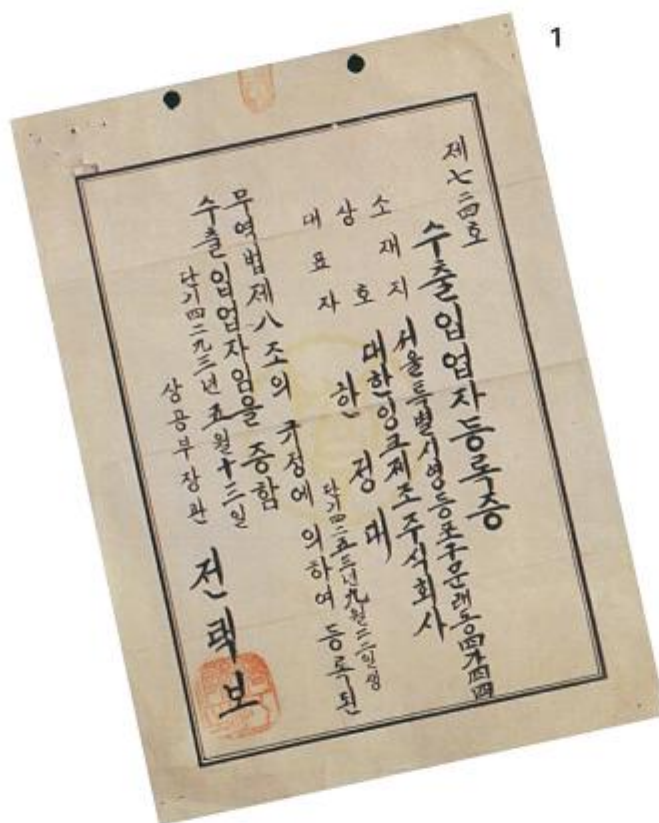 1
제七二四호
수출입업자등록증
소재지 서울특별시영등포구문래동四가四四
상호 대한잉크제조주식회사
대표자 한정대
단기四二五三년九월二二일생
무역법제八조의 규정에 의하여 등록된
수출입업자임을 증함
단기四二九三년五월十三일
상공부장관 전택보